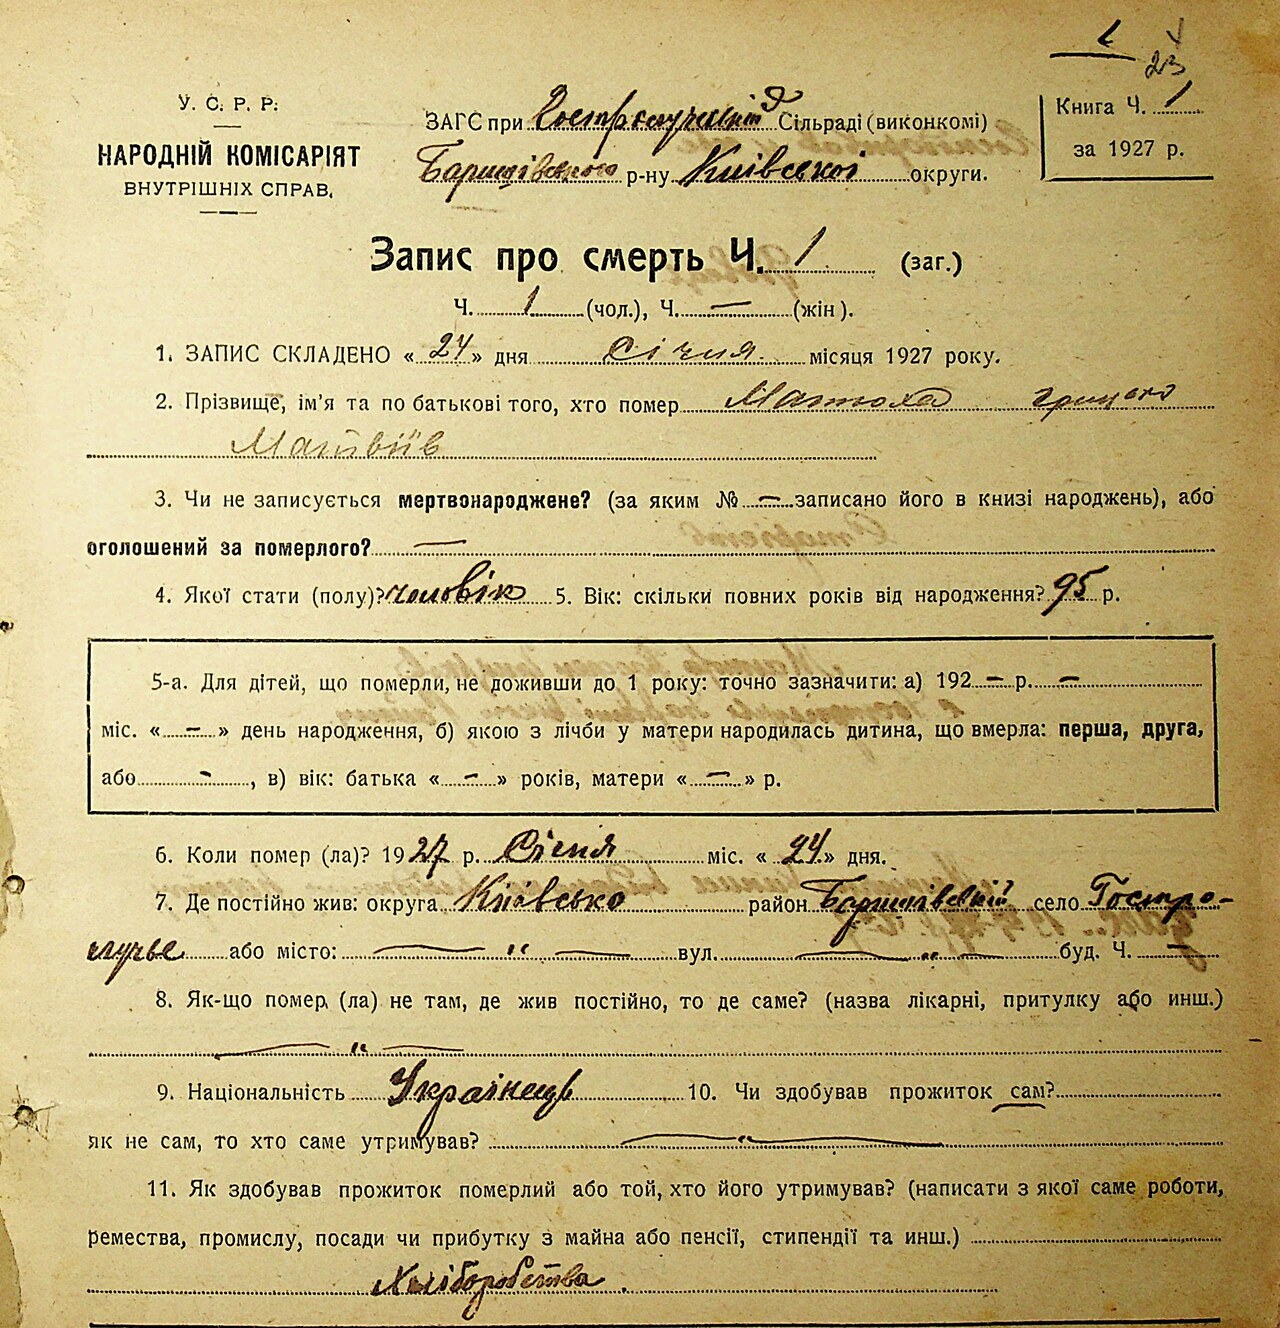 23
У. С. Р. Р.
НАРОДНІЙ КОМІСАРІЯТ
ВНУТРІШНІХ СПРАВ.
ЗАГС при Гостролучській Сільраді (виконкомі)
Баришівського р-ну Київської округи.
Книга Ч. 1
за 1927 р.
Запис про смерть Ч. 1 (заг.)
Ч. 1 (чол.), Ч. — (жін).
1. ЗАПИС СКЛАДЕНО « 24 » дня Січня місяця 1927 року.
2. Прізвище, ім'я та по батькові того, хто помер Матюха Грицько
Матвіїв
3. Чи не записується мертвонароджене? (за яким № — записано його в книзі народжень), або
оголошений за померлого? —
4. Якої стати (полу)? чоловік 5. Вік: скільки повних років від народження? 95 р.
5-а. Для дітей, що померли, не доживши до 1 року: точно зазначити: а) 192 — р. —
міс. « — » день народження, б) якою з лічби у матери народилась дитина, що вмерла: перша, друга,
або - , в) вік: батька « — » років, матери « — » р.
6. Коли помер (ла)? 1927 р. Січня міс. « 24 » дня.
7. Де постійно жив: округа Київсько район Баришівській село Гостро-
лучье або місто: — " — вул. — " — буд. Ч. —
8. Як-що помер (ла) не там, де жив постійно, то де саме? (назва лікарні, притулку або инш.)
— " —
9. Національність Українець 10. Чи здобував прожиток сам?
як не сам, то хто саме утримував? — " —
11. Як здобував прожиток померлий або той, хто його утримував? (написати з якої саме роботи,
ремества, промислу, посади чи прибутку з майна або пенсії, стипендії та инш.)
Хліборобства.